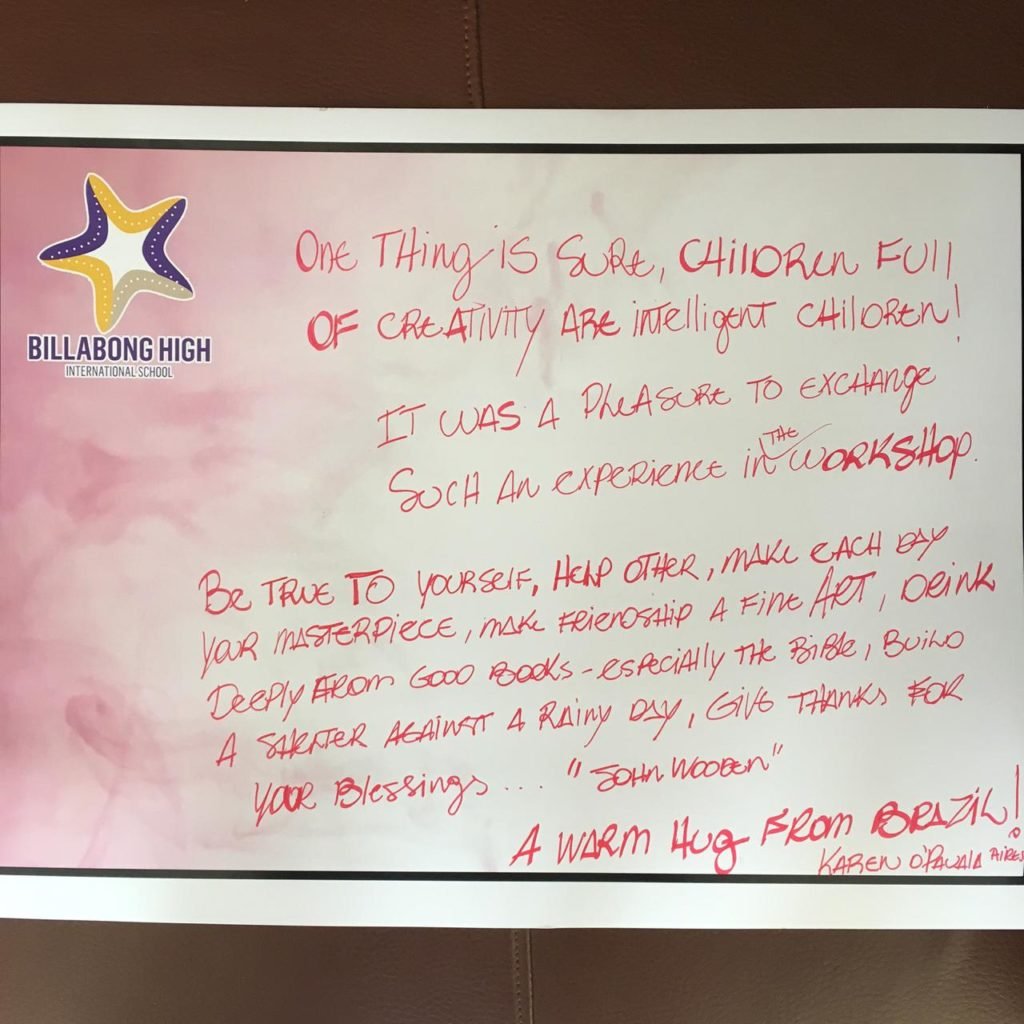 BILLABONG HIGH
INTERNATIONAL SCHOOL
ONE THING IS SURE, CHILDREN FULL
OF CREATIVITY ARE INTELLIGENT CHILDREN!
IT WAS A PLEASURE TO EXCHANGE
SUCH AN EXPERIENCE IN THE WORKSHOP.
BE TRUE TO YOURSELF, HELP OTHER, MAKE EACH DAY
YOUR MASTERPIECE, MAKE FRIENDSHIP A FINE ART, DRINK
DEEPLY FROM GOOD BOOKS - ESPECIALLY THE BIBLE, BUILD
A SHELTER AGAINST A RAINY DAY, GIVE THANKS FOR
YOUR BLESSINGS... "JOHN WOODEN"
A WARM HUG FROM BRAZIL!
KAREN